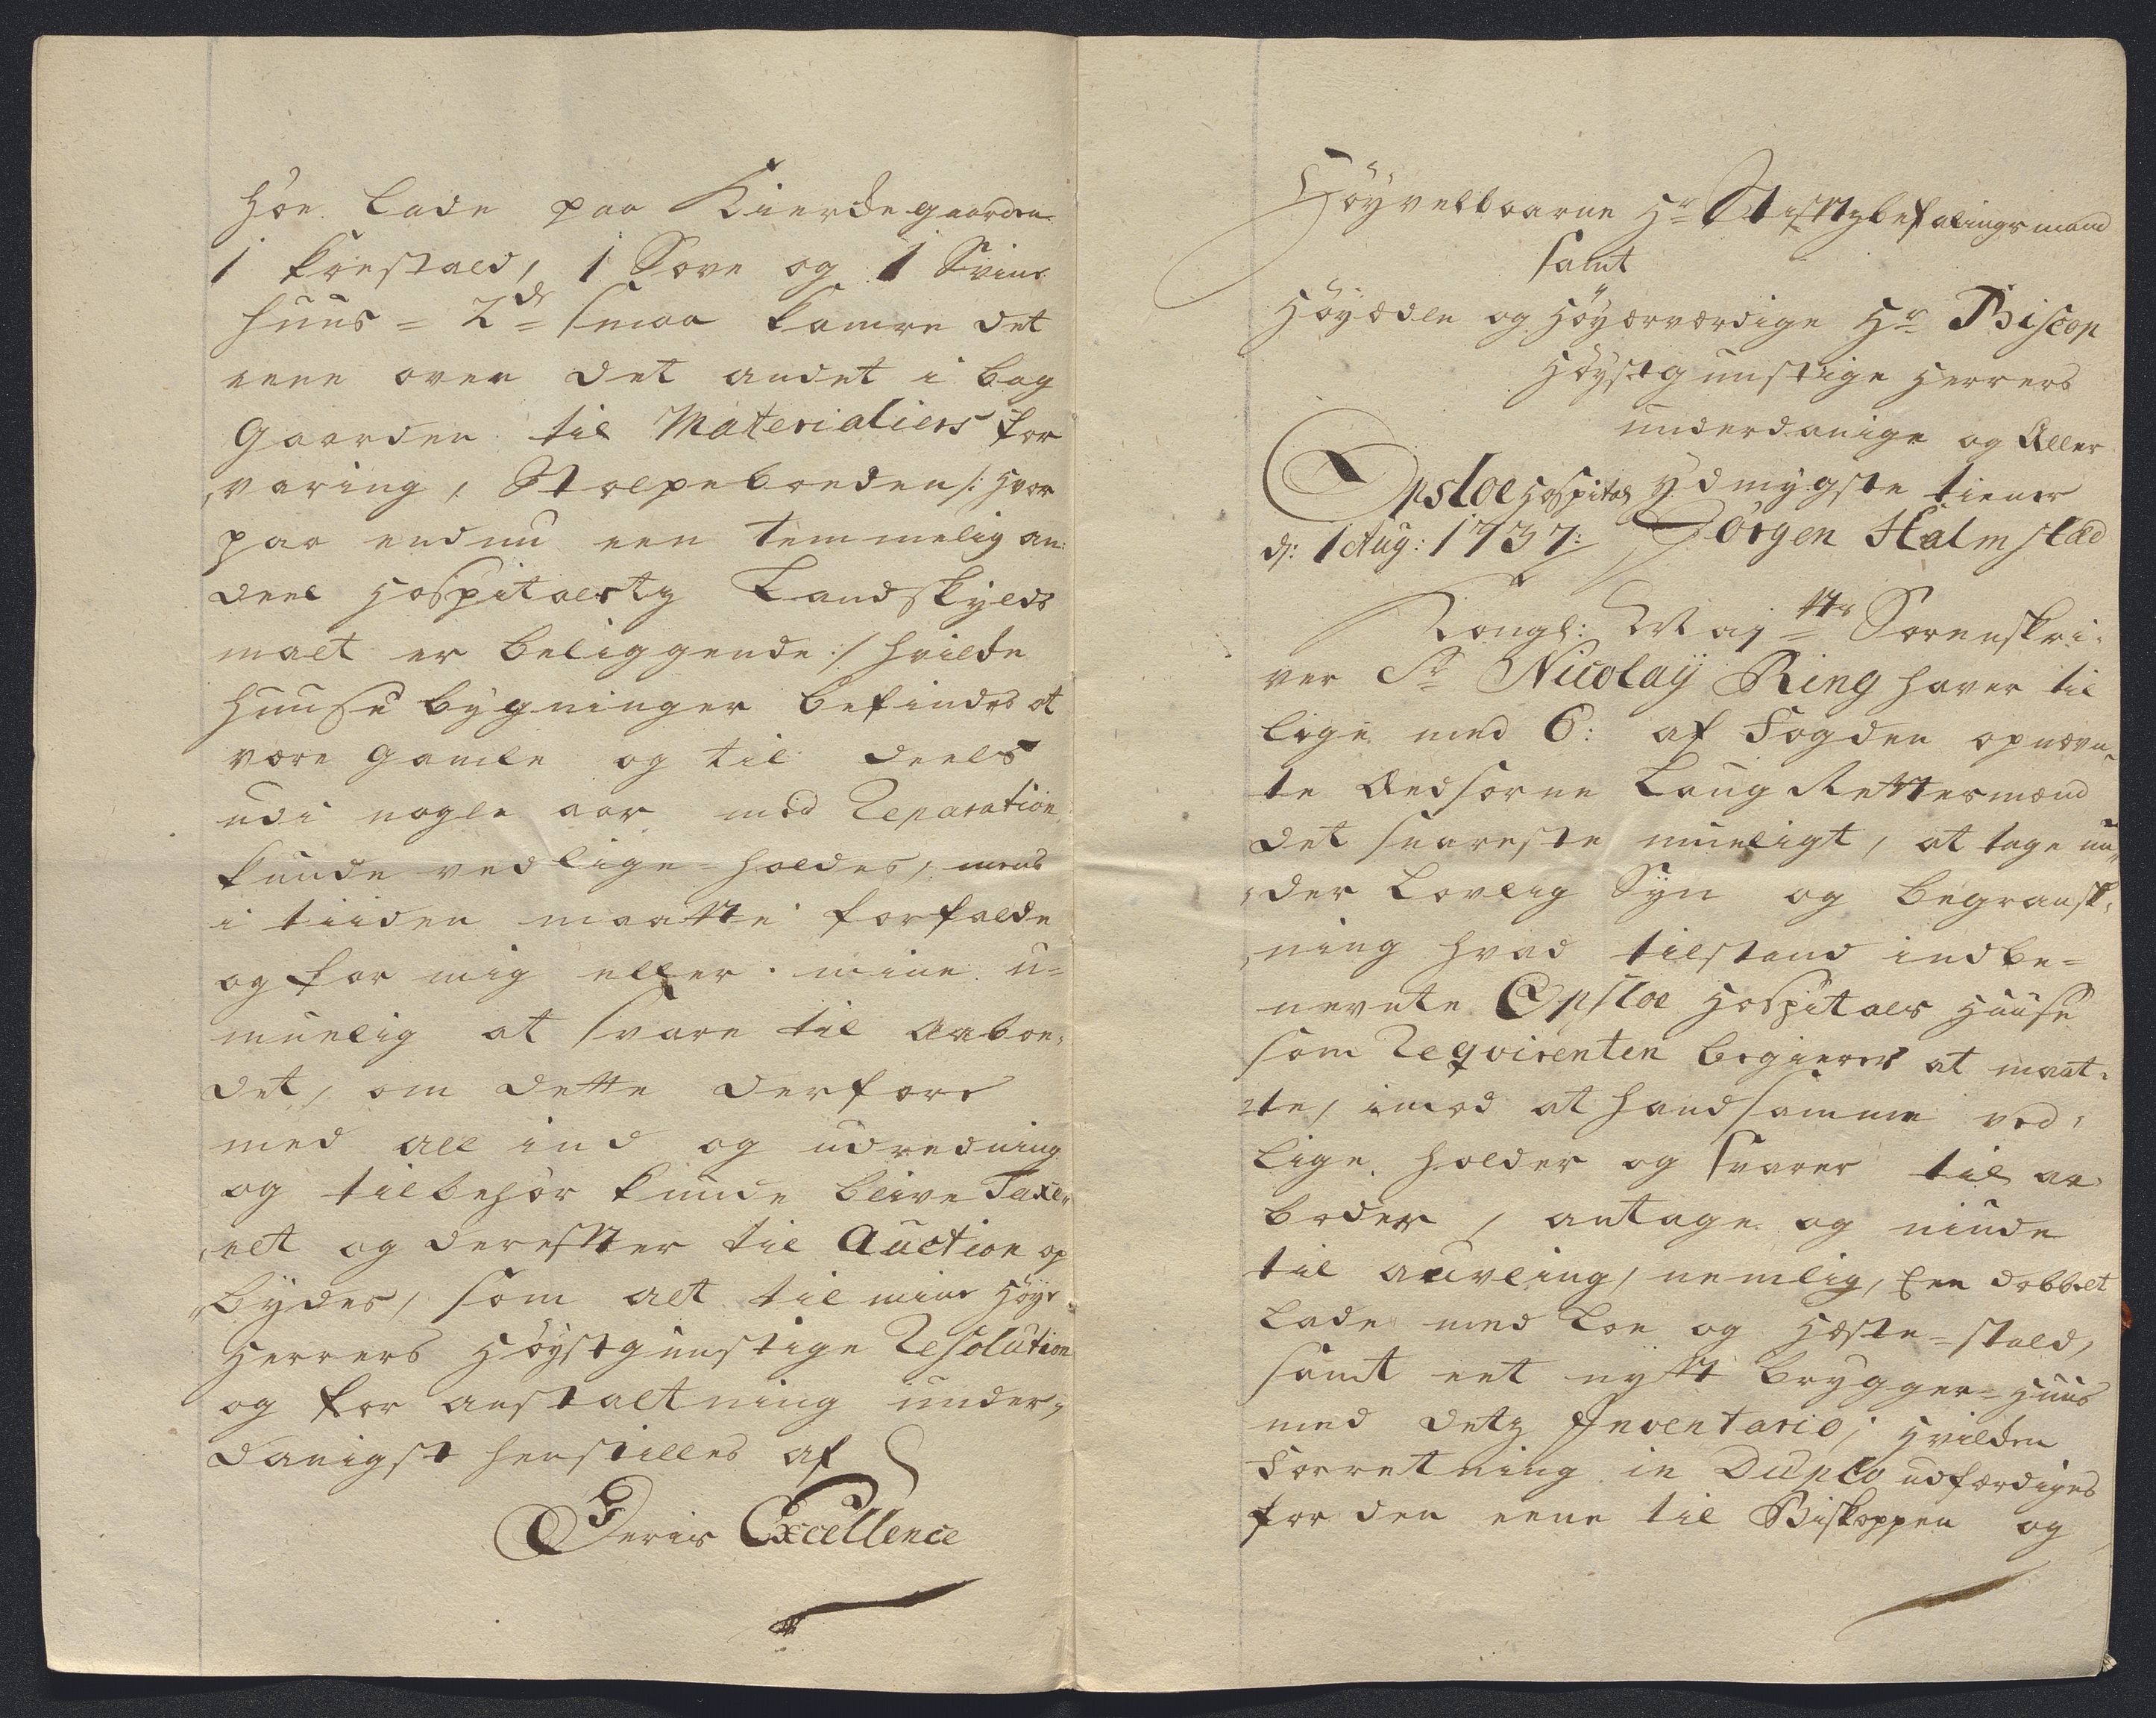 Høe Lade paa Kierdegaarden
1 Køestald, 1 Sove og 1 Svine
huus = 2de smaa Kamre det
eene over det andet i bag
Gaarden til Materialiers for
varing, Stolpeboeden /: hvor
paa endnu een temmelig an:
deel Hospitaletz Landskylds
malt er beliggende :/ hvilke
Huuse bygninger befindes at
være gamle og til deels
udi nogle aar med Reparation
kunde vedlige-holdes, mens
i tiiden maatte forfalde
og for mig eller mine u=
muelig at svare til Aaboe,
det, om dette derfore
med all ind og udredning
og tilbehør kunde blive Taxe„
ret og derefter til Auction op
bydes, som alt til mine Høye
Herrers Høystgunstige Resolution
og for anstaltning under„
danigst henstilles af
Deris Excellence
Høyvelbaarne Hr Stiftzbefalingsmand
samt
Høyædle og Høyærværdige Hr Biscop
Høystgunstige Herrers
underdanige og Aller
Opsloe Hospital ydmygste tiener
d: 1 Aug: 1737: Jørgen Halmstæd
Kongl: Maj:tts Sorenskri-
ver Sr Nicolaÿ Ring haver til
lige med 6: af Fogden opnævn„
te Eedsorne Laug Rettesmænd
det snareste mueligt, at tage un„
„der Lovlig Syn og begransk„
„ning hvad tilstand indbe=
nevnte Opsloe Hospitals Huuse
som Reqvirenten begierer at maat„
te, imod at hand samme ved„
lige holder og svarer til aa
boder, antage og niude
til auvling, nemlig, Een dobbelt
Lade med Loe og Heste-stald,
samt eet nytt Brygger-Huus
med detz Inventario; hvilken
Forretning in Duplo udfærdiges
for den eene til Biskoppen og